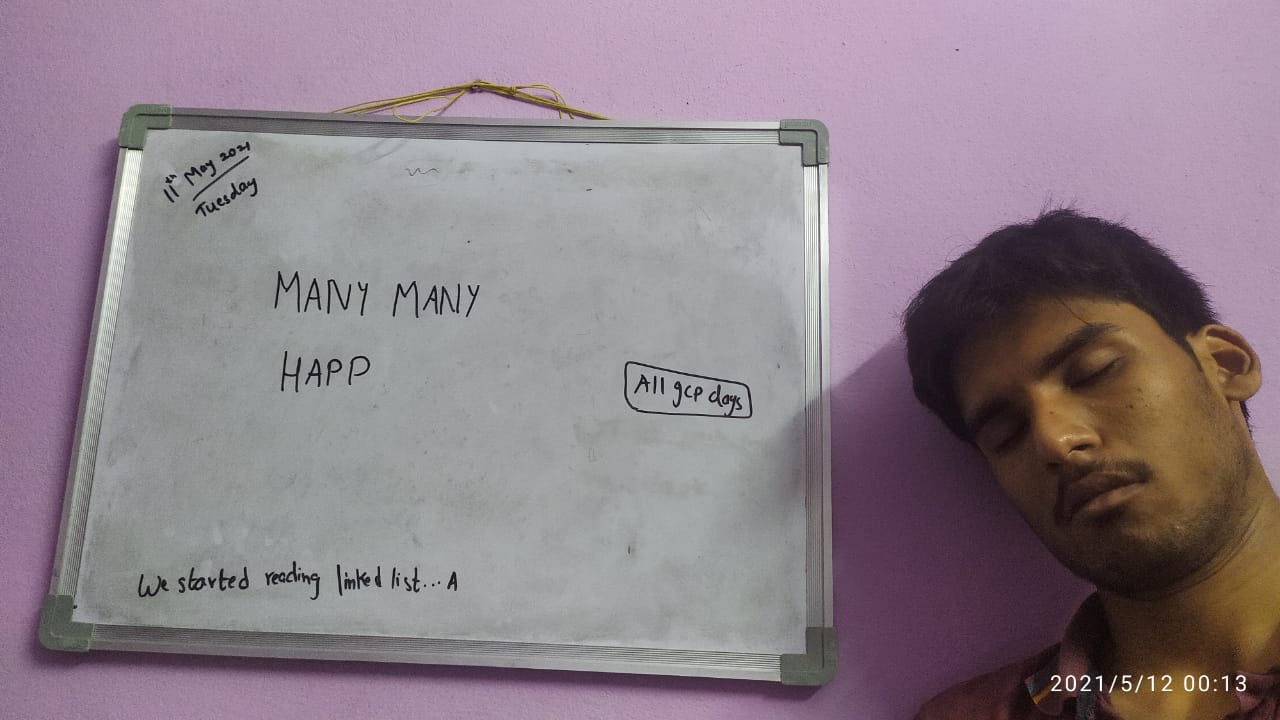 11th May 2021
Tuesday
MANY MANY
HAPP
All gcp days
We started reading linked list... A
2021/5/12 00:13